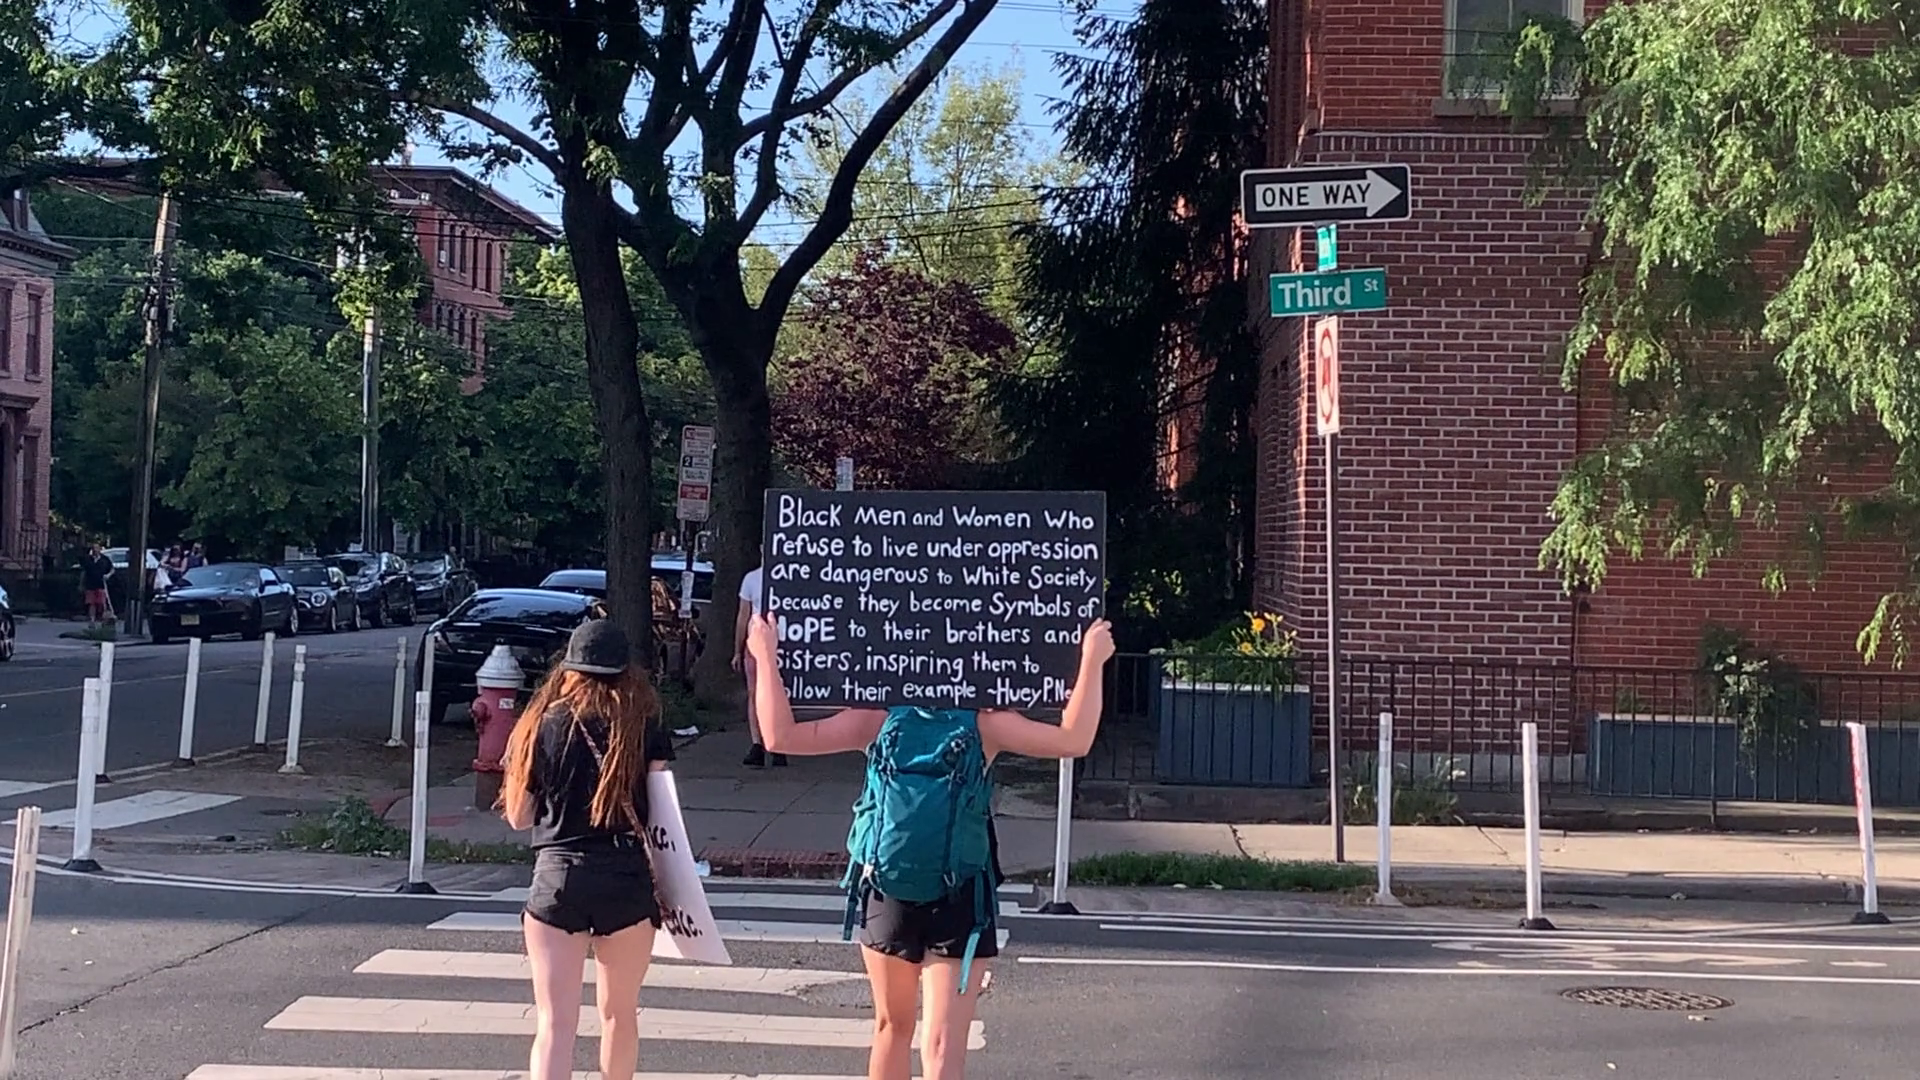 ONE WAY
Third St
2
Black Men and Women Who
refuse to live under oppression
are dangerous to White Society
because they become Symbols of
HOPE to their brothers and
sisters, inspiring them to
ollow their example ~Huey P. Ne